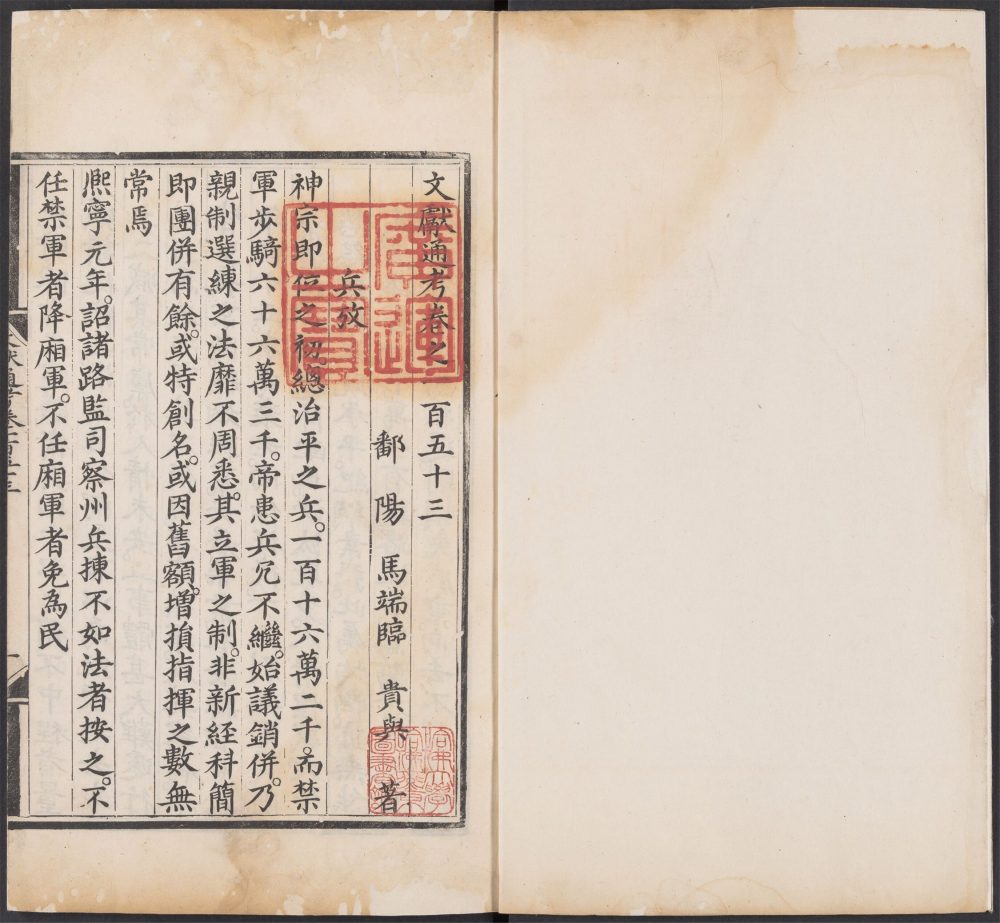 文獻通考卷之一百五十三
鄱陽馬端臨貴與著
兵攷
神宗即位之初總治平之兵。一百十六萬二千。而禁
軍步騎六十六萬三千。帝患兵冗不繼。始議銷併。乃
親制選練之法靡不周悉。其立軍之制。非新經科簡
即團併有餘。或特創名。或因舊額。增損指揮之數無
常焉
熈寧元年。詔諸路監司察州兵揀不如法者按之。不
任禁軍者降廂軍。不任廂軍者免為民